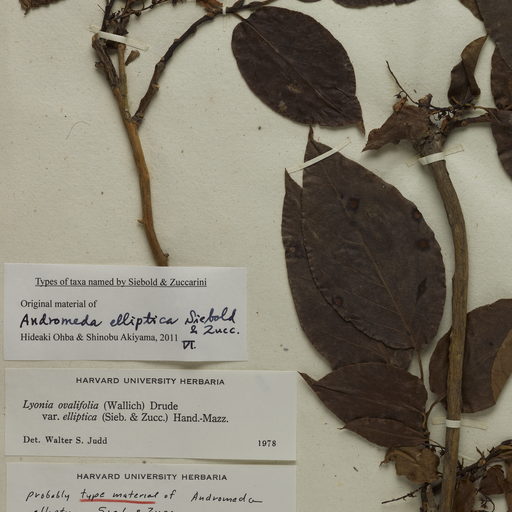 Types of taxa named by Siebold & Zuccarini
Original material of
Andromeda elliptica Siebold
& Zucc.
Hideaki Ohba & Shinobu Akiyama, 2011 VI.
HARVARD UNIVERSITY HERBARIA
Lyonia ovalifolia (Wallich) Drude
var. elliptica (Sieb. & Zucc.) Hand.-Mazz.
Det. Walter S. Judd 1978
HARVARD UNIVERSITY HERBARIA
probably type material of Andromeda